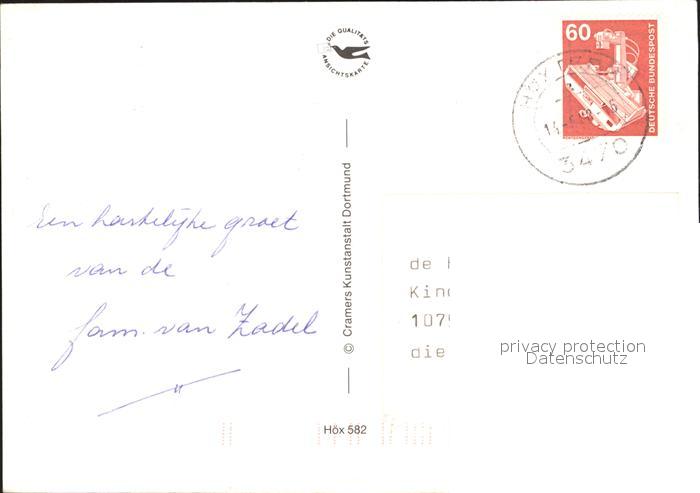 DIE QUALITÄTS
ANSICHTSKARTE
60
DEUTSCHE BUNDESPOST
3470
Een hartelijke groet
van de
fam. van Zadel
© Cramers Kunstanstalt Dortmund
Höx 582
de
Kin
107
die
privacy protection
Datenschutz